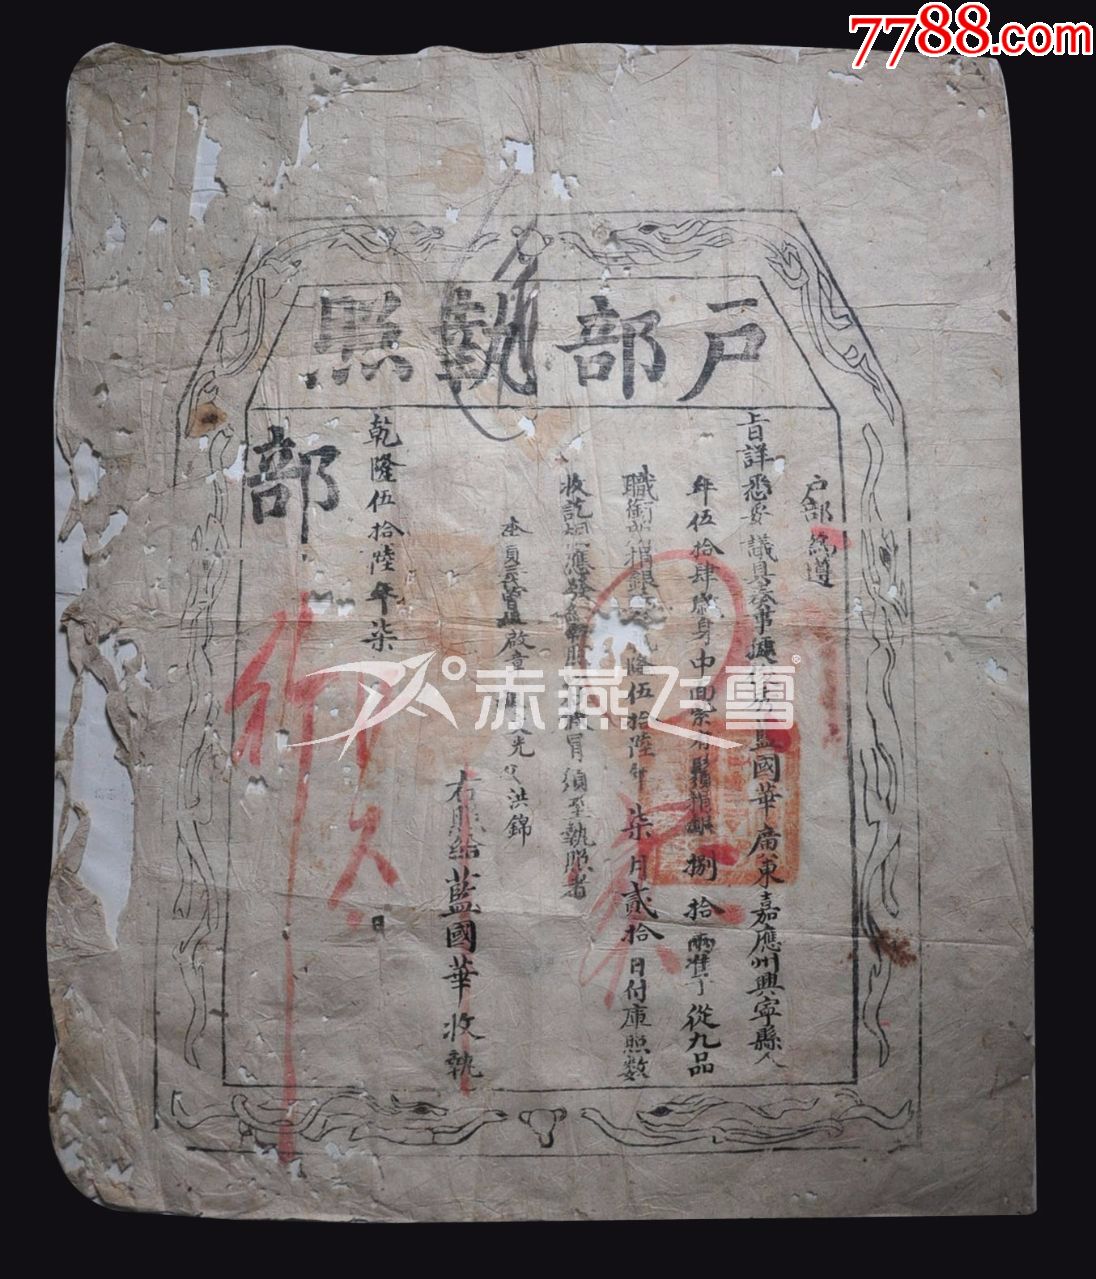 7788.com
戶部執照
戶部為遵
旨詳悉妥議具奏事據 藍國華廣東嘉應州興寧縣人
年伍拾肆歲身中面紫有鬚捐銀捌拾兩准予從九品
職銜 捐銀 隆伍拾陸年柒月貳拾日付庫照數
收訖 應發 執照 冒須至執照者
本員 曾祖啟章 光父洪錦
右照給藍國華收執
乾隆伍拾陸年柒
日
部
行
赤燕飞雪®